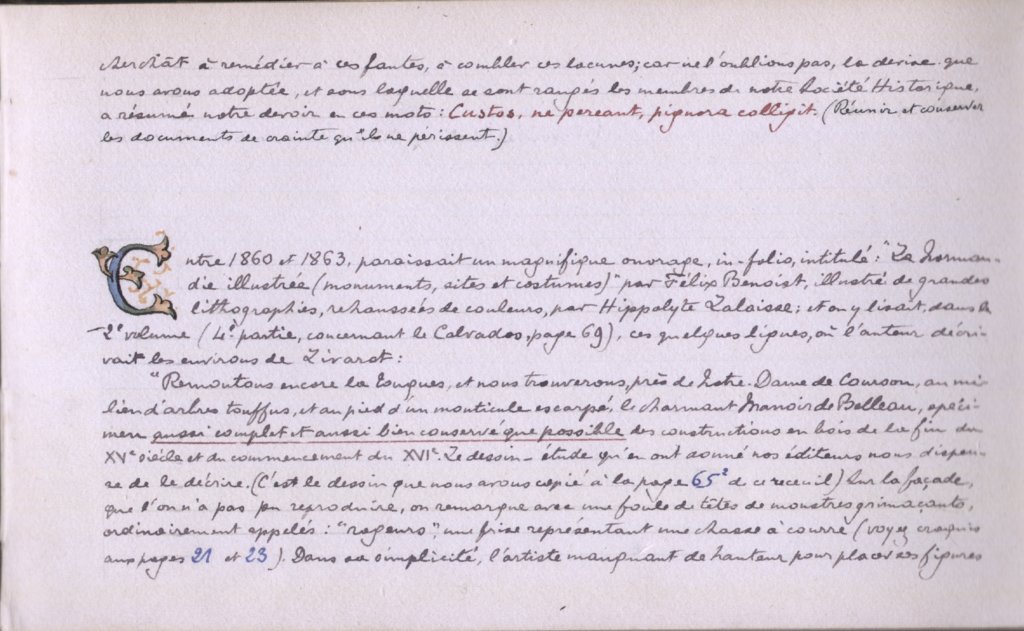 cherchât à remédier à ces fautes, à combler ces lacunes; car ne l'oublions pas, la devise que
nous avons adoptée, et sous laquelle se sont rangés les membres de notre Société Historique,
a résumé notre devoir en ces mots: Custos, ne pereant, pignora colligit. (Réunir et conserver
les documents de crainte qu'ils ne périssent.)
Entre 1860 et 1863, paraissait un magnifique ouvrage, in-folio, intitulé: "La Norman-
die illustrée (monuments, sites et costumes)" par Félix Benoist, illustré de grandes
lithographies, rehaussées de couleurs, par Hippolyte Lalaisse; et on y lisait, dans le
2e volume (4e partie, concernant le Calvados, page 69), ces quelques lignes, où l'auteur décri-
vait les environs de Livarot:
"Remontons encore la Touques, et nous trouverons, près de Notre-Dame de Courson, au mi-
lieu d'arbres touffus, et au pied d'un monticule escarpé, le charmant Manoir de Belleau, spéci-
men aussi complet et aussi bien conservé que possible des constructions en bois de la fin du
XVe siècle et du commencement du XVIe. Le dessin-étude qu'en ont donné nos éditeurs nous dispen-
se de le décrire. (C'est le dessin que nous avons copié à la page 65² de ce recueil) Sur la façade,
que l'on n'a pas pu reproduire, on remarque avec une foule de têtes de monstres grimaçants,
ordinairement appelés: "rageurs", une frise représentant une chasse à courre (voyez croquis
aux pages 21 et 23). Dans sa simplicité, l'artiste manquant de hauteur pour placer ses figures